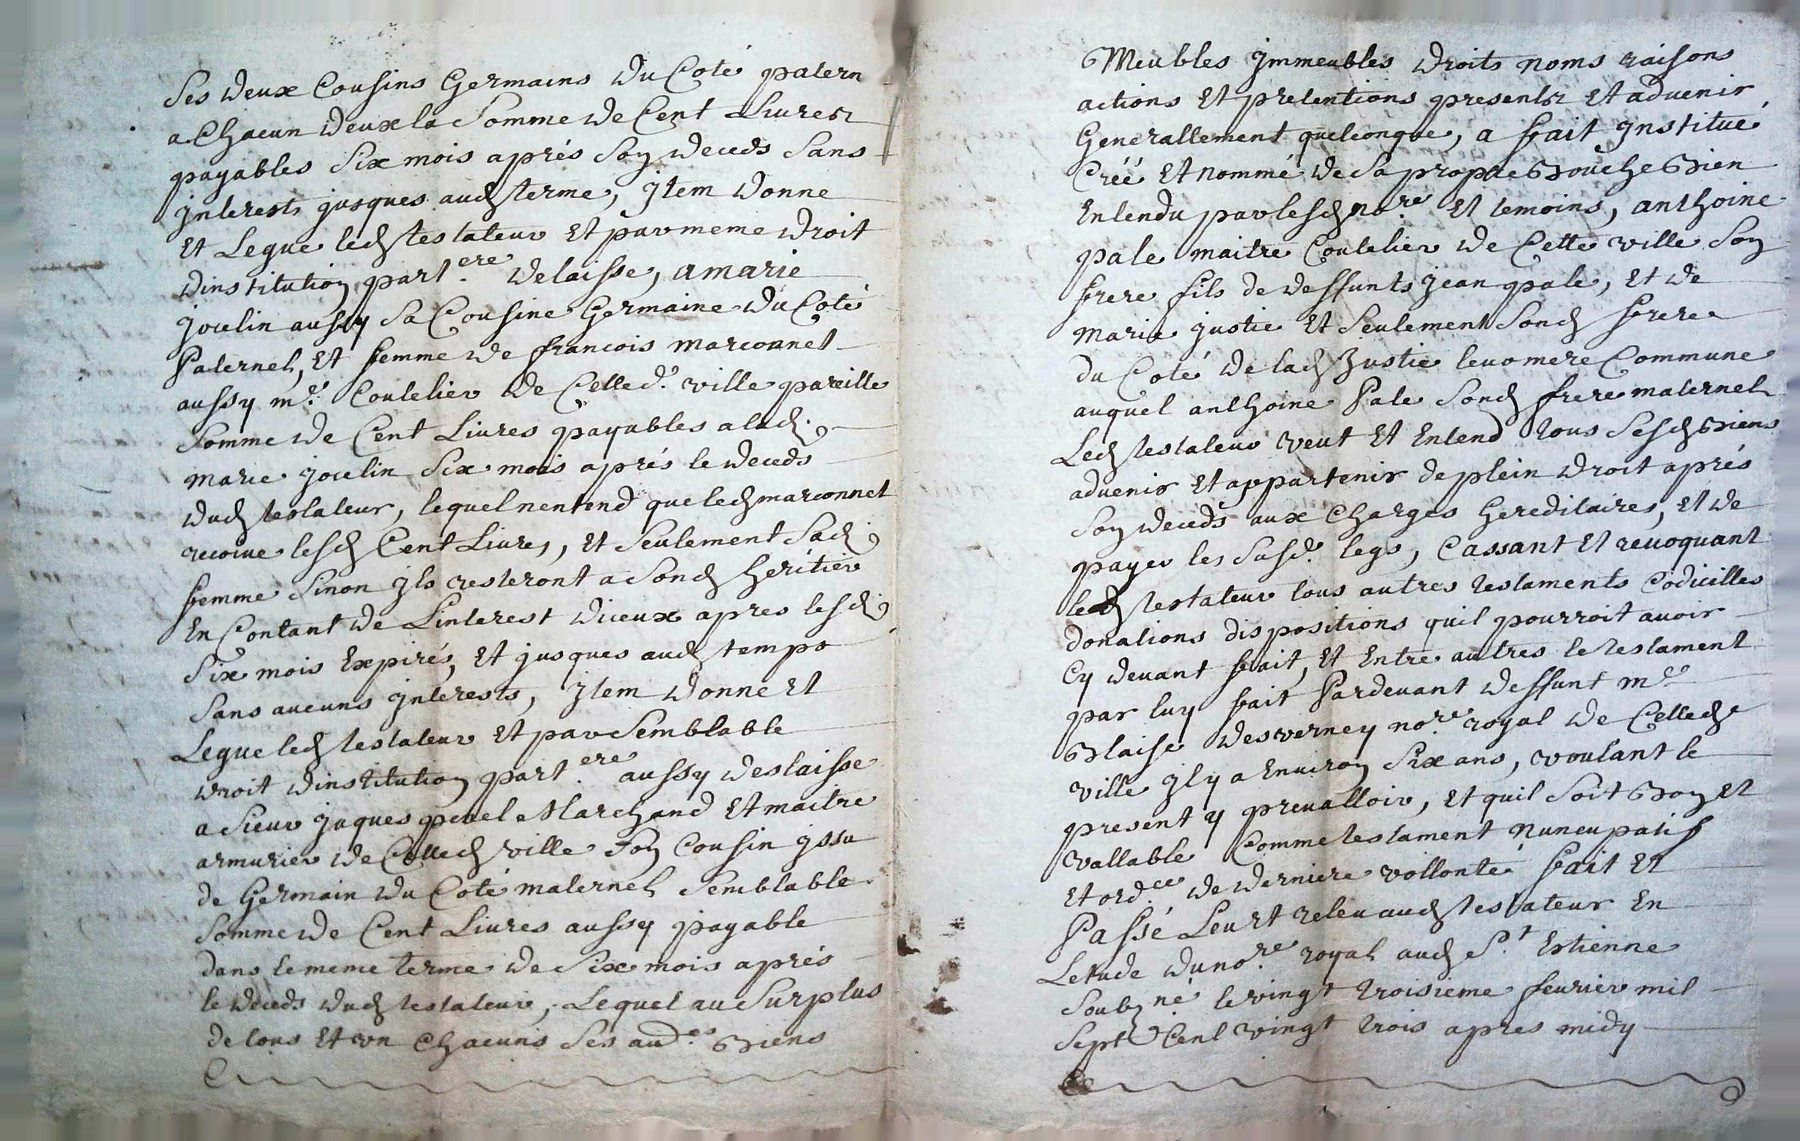 ses deux Cousins Germains du Coté patern
a Chacun deux la Somme de Cent Livres
payables Six mois aprés Son deceds Sans
jnterests jusques aud terme, jtem donne
Et Legue led testateur Et par meme droit
dinstitution part.ere delaisse, a marie
jocelin aussy Sa Cousine Germaine du Coté
Paternel, Et femme de francois marconnet
aussy m.e Coutelier de Celled.e ville pareille
Somme de Cent Livres payables a lad.
marie jocelin Six mois aprés le deceds
dud testateur, lequel nentend que led marconnet
recoive lesd Cent Livres, Et Seulement Sad.
femme Sinon jls resteront a Sond heritier
En Contant de Linterest diceux apres lesd.
Six mois Expirés, Et jusques aud temps
Sans aucuns jnterests, jtem donne Et
Legue led testateur Et par Semblable
droit dinstitution part.ere aussy deslaisse
a Sieur jaques penel Marchand Et maitre
armurier de Celled ville Son Cousin jssu
de Germain du Coté maternel Semblable
Somme de Cent Livres aussy payable
dans le meme terme de Six mois aprés
le deceds dud testateur, Lequel au Surplus
de tous Et un Chacuns Ses aud.es Biens
Meubles jmmeubles droits noms raisons
actions Et pretentions presents Et advenir
Generallement quelconque, a fait jnstitué
Créé Et nommé de Sa propre Bouche Bien
Entendu par lesd no.re Et temoins, anthoine
pale maitre Coutelier de Cette ville Son
frere fils de deffunts jean pale, Et de
marie justie Et Seulement Sond frere
du Coté de lad Justie leur mere Commune
auquel anthoine Pale Sond frere maternel
Led testateur veut Et Entend tous Sesd Biens
advenir Et appartenir de plein droit aprés
Son deceds aux Charges hereditaires, Et de
payer les Susd.s legs, Cassant Et revoquant
led testateur tous autres testaments Codicilles
donations dispositions quil pourroit avoir
Cy devant fait, Et Entre autres le testament
par luy fait Pardevant deffunt m.e
Blaise desverney no.re royal de Celled.e
ville jl y a Environ Six ans, voulant le
present y prevalloir, Et quil Soit Bon Et
vallable Comme testament nuncupatif
Et ord.ce de derniere vollonté fait Et
Passé Leu Et releu aud testateur En
Letude du no.re royal aud S.t Estienne
Soubz.né le vingt troisieme fevrier mil
Sept Cent vingt trois apres midy